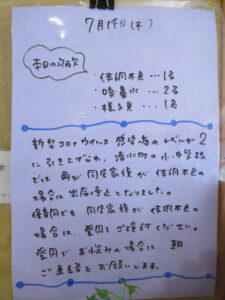 7月14日(木)
本日のお休み
・体調不良…1名
・咳鼻水…2名
・様子見…1名
新型コロナウイルス感染症のレベルが2
に引き上げられ、清水町の小中学校
では、再び同居家族が体調不良の
場合は出席停止となりました。
保育園でも同居家族が体調不良の
場合は、登園をご遠慮ください。
登園でお悩みの場合は、朝
ご連絡をお願いします。